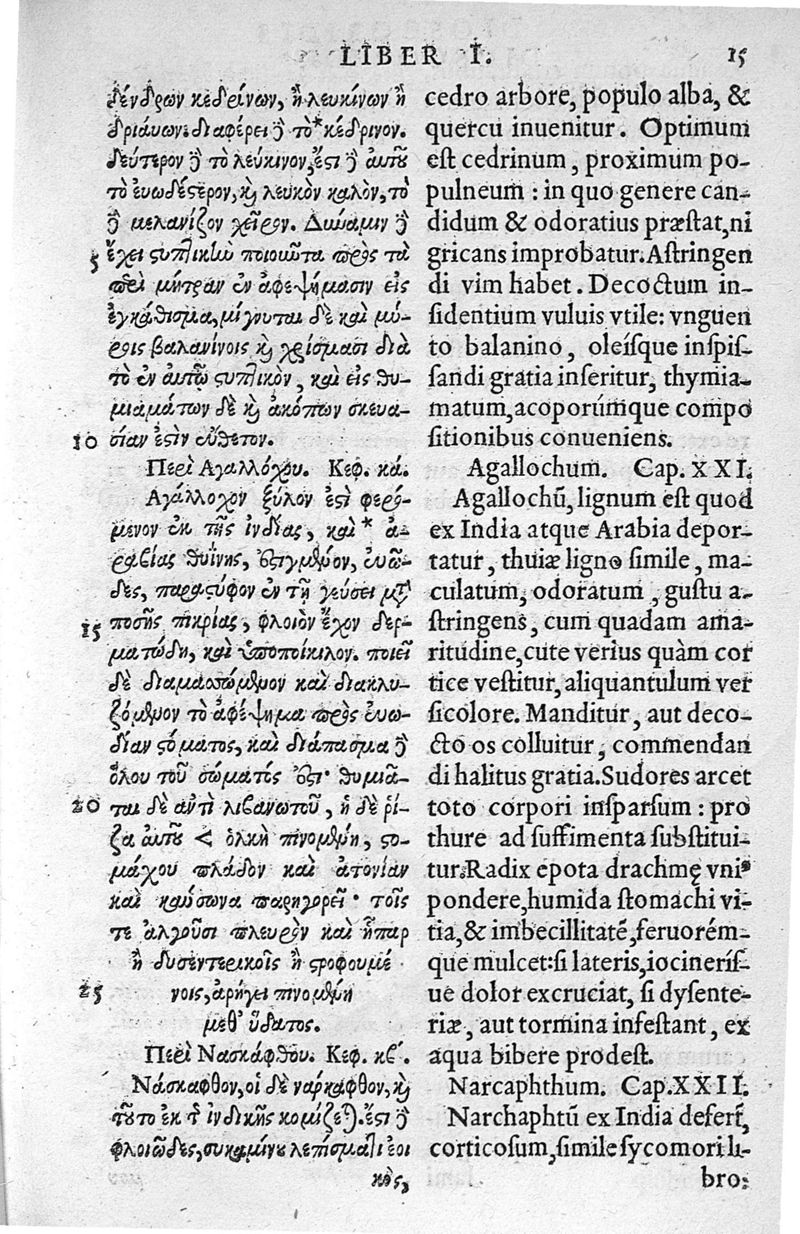 LIBER I. 15
δένδρων κεδρίνων, ἢ λευκίνων ἢ
δρυΐνων. διαφέρει δὲ τὸ *κέδρινον.
δεύτερον δὲ τὸ λεύκινον, ἔστι δὲ αὐτοῦ
τὸ εὐωδέστερον, καὶ λευκὸν καλὸν, τὸ
δὲ μελανίζον χεῖρον. Δύναμιν δὲ
5 ἔχει στυπτικὴν ποιοῦσα πρὸς τὰ
περὶ μήτραν ἐν ἀφεψήμασιν εἰς
ἐγκάθισμα, μίγνυται δὲ καὶ μύ-
ροις βαλανίνοις καὶ χρίσμασι διὰ
τὸ ἐν αὐτῷ στυπτικὸν, καὶ εἰς θυ-
μιαμάτων δὲ καὶ ἀκόπων σκευα-
10 σίαν ἐστὶν εὔθετον.
Περὶ Αγαλλόχου. Κεφ. κά.
Αγάλλοχον ξύλον ἐστὶ φερό-
μενον ἐκ τῆς ἰνδίας, καὶ * ἀ-
ραβίας θυΐνης, ἐστιγμένον, εὐῶ-
δες, παραστύφον ἐν τῇ γεύσει μετὰ
15 ποσῆς πικρίας, φλοιὸν ἔχον δερ-
ματώδη, καὶ ὑποποίκιλον. ποιεῖ
δὲ διαμασώμενον καὶ διακλυ-
ζόμενον τὸ ἀφέψημα πρὸς εὐω-
δίαν στόματος, καὶ διάπασμα δὲ
ὅλου τοῦ σώματός ἐστι· θυμιᾶ-
20 ται δὲ ἀντὶ λιβανωτοῦ, ἡ δὲ ῥί-
ζα αὐτοῦ < ὁλκὴ πινομένη, στο-
μάχου πλάδον καὶ ἀτονίαν
καὶ καύσωνα παρηγορεῖ· τοῖς
τε ἀλγοῦσι πλευρὸν καὶ ἧπαρ
ἢ δυσεντερικοῖς ἢ στροφουμέ
25 νοις, ἀρήγει πινομένη
μεθ' ὕδατος.
Περὶ Νασκάφθου. Κεφ. κβ'.
Νάσκαφθον, οἱ δὲ νάρκαφθον, καὶ
τοῦτο ἐκ τῆς ἰνδικῆς κομίζεται. ἔστι δὲ
φλοιῶδες, συκαμίνου λεπίσματι ἐοι
κὸς,
cedro arbore, populo alba, &
quercu inuenitur. Optimum
est cedrinum, proximum po-
pulneum: in quo genere can-
didum & odoratius præstat, ni
gricans improbatur. Astringen
di vim habet. Decoctum in-
sidentium vuluis vtile: vnguen
to balanino, oleísque inspis-
sandi gratia inseritur, thymia-
matum, acoporúmque compo
sitionibus conueniens.
Agallochum. Cap. XXI.
Agallochũ, lignum est quod
ex India atque Arabia depor-
tatur, thuiæ ligno simile, ma-
culatum, odoratum, gustu a-
stringens, cum quadam ama-
ritudine, cute verius quàm cor
tice vestitur, aliquantulum ver
sicolore. Manditur, aut deco-
cto os colluitur, commendan
di halitus gratia. Sudores arcet
toto corpori inspersum: pro
thure ad suffimenta substitui-
tur. Radix epota drachmę vni⁹
pondere, humida stomachi vi-
tia, & imbecillitatẽ, feruorém-
que mulcet: si lateris, iocinerís-
ue dolor excruciat, si dysente-
riæ, aut tormina infestant, ex
aqua bibere prodest.
Narcaphthum. Cap. XXII.
Narchaphtũ ex India defert,
corticosum, simile sycomori li-
bro: